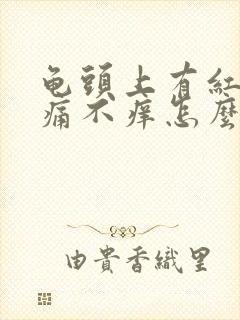 龟頭上有紅
痛不癢怎麼
由貴香織里